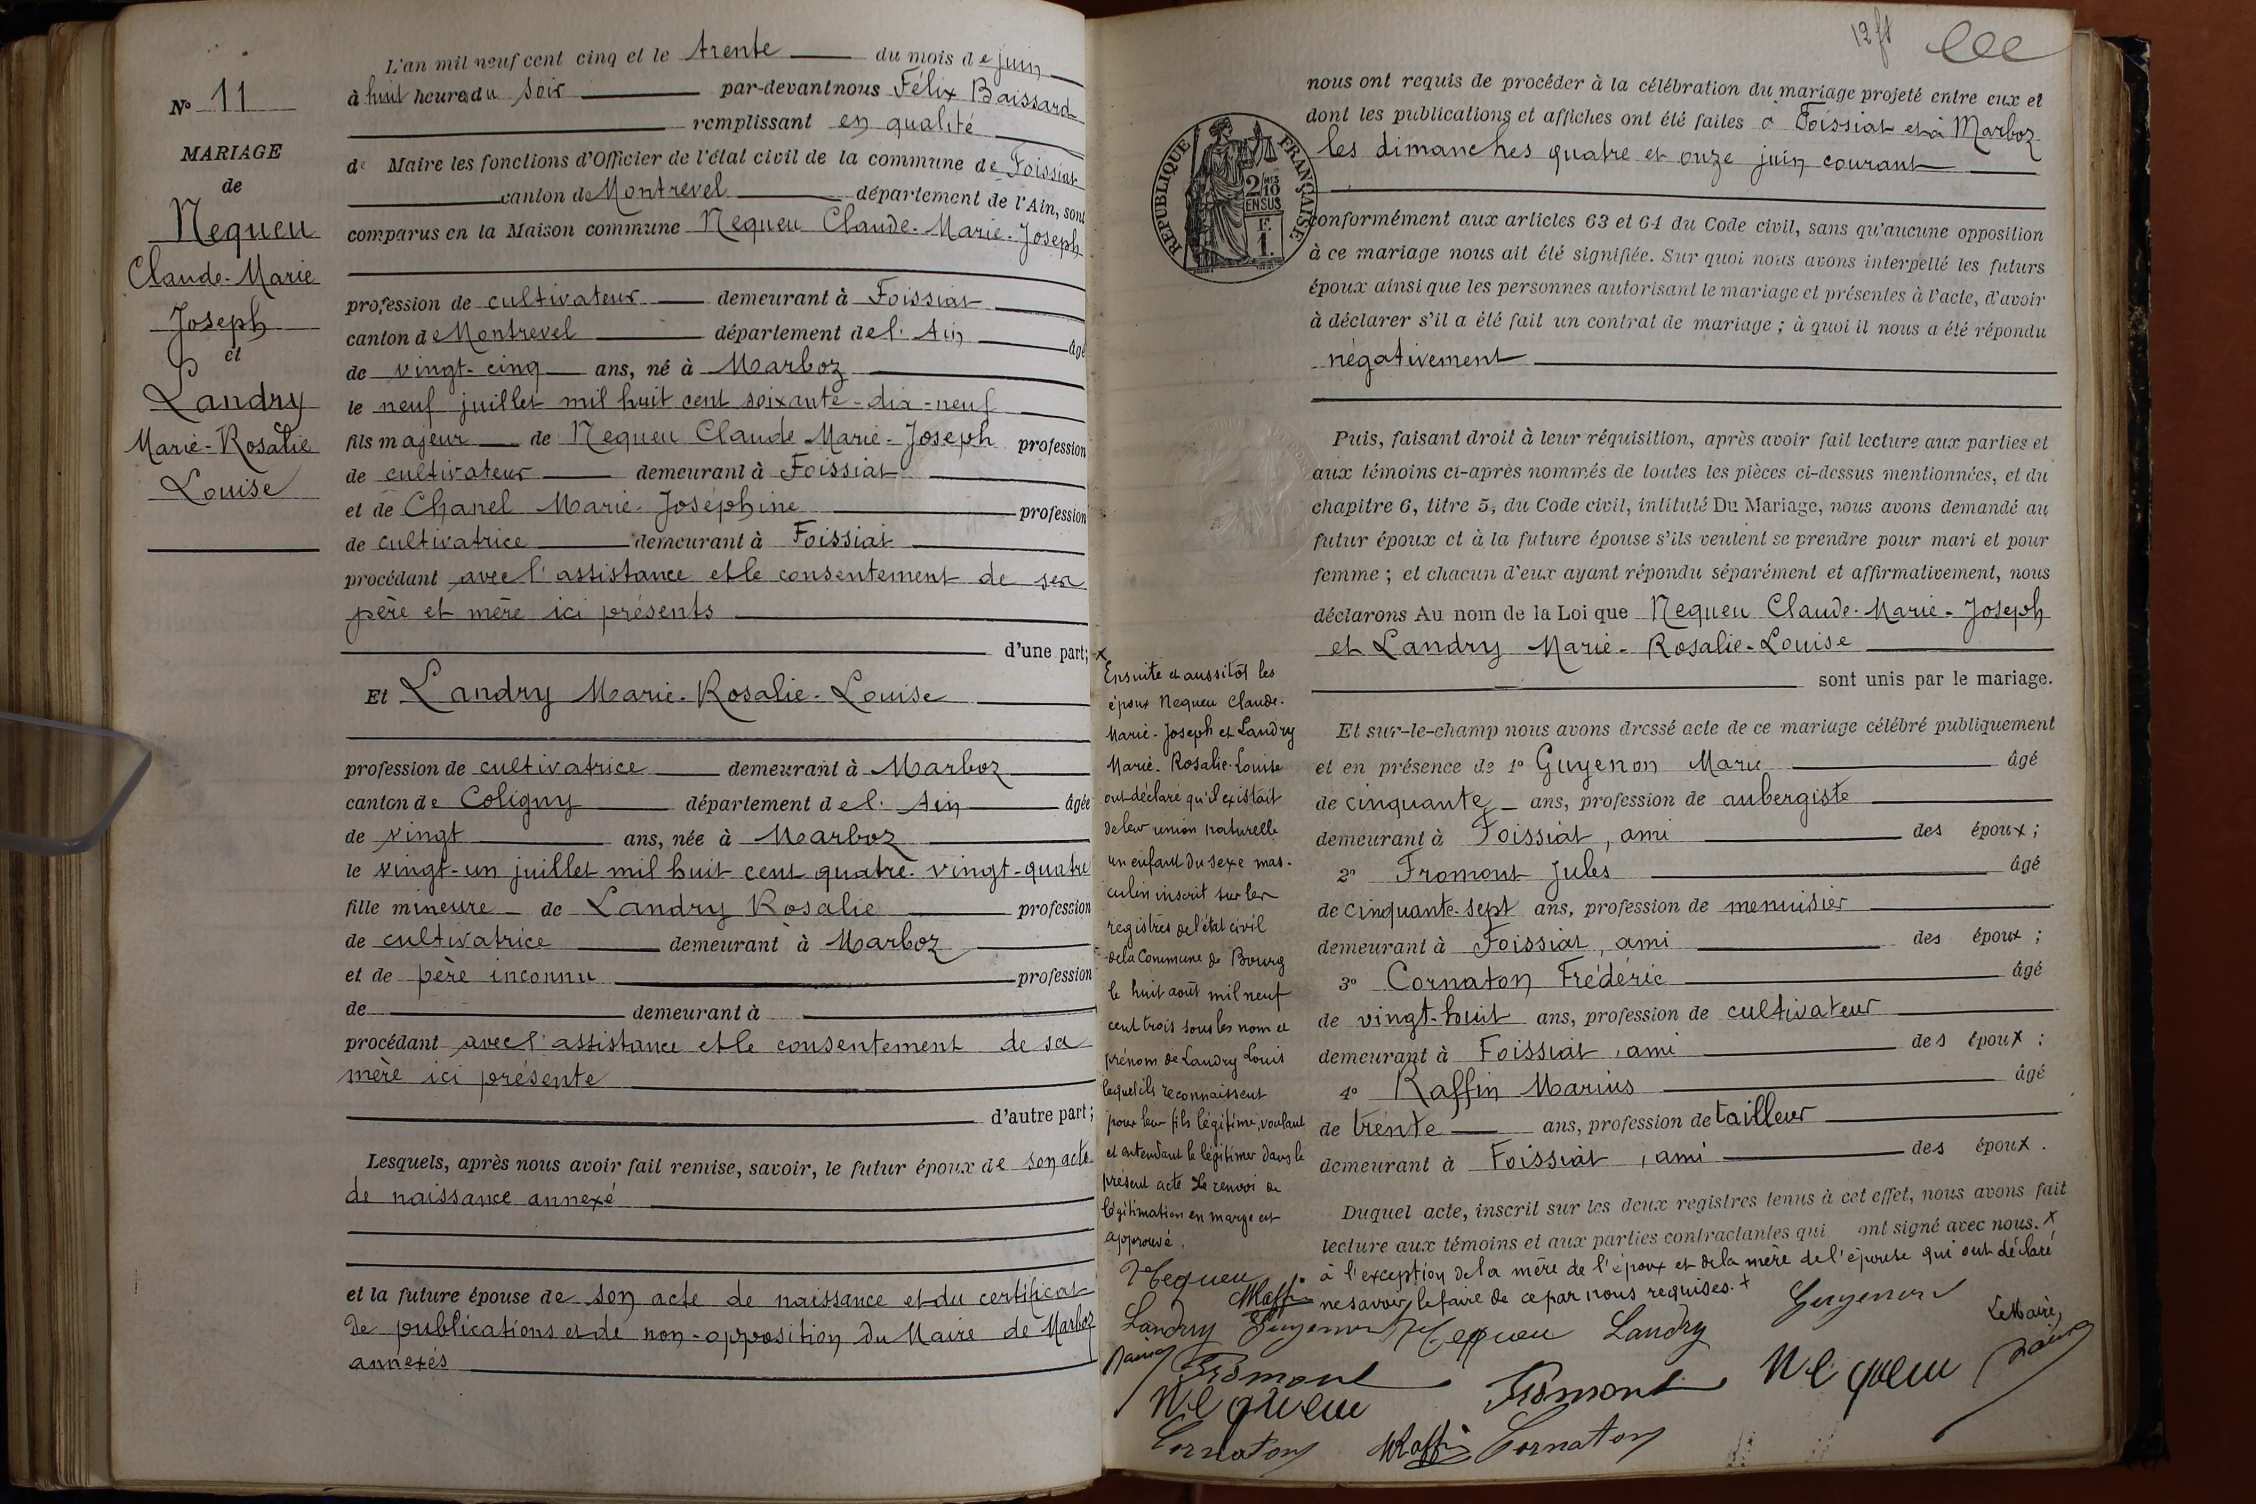 N° 11
MARIAGE
de
Nequeu
Claude-Marie
Joseph
et
Landry
Marie-Rosalie
Louise
L'an mil neuf cent cinq et le trente du mois de juin
à huit heures du soir par-devant nous Félix Baissard
remplissant en qualité
de Maire les fonctions d'Officier de l'état civil de la commune de Foissiat
canton de Montrevel département de l'Ain, sont
comparus en la Maison commune Nequeu Claude-Marie-Joseph
profession de cultivateur demeurant à Foissiat
canton de Montrevel département de l'Ain âgé
de vingt-cinq ans, né à Marboz
le neuf juillet mil huit cent soixante-dix-neuf
fils majeur de Nequeu Claude Marie-Joseph profession
de cultivateur demeurant à Foissiat
et de Chanel Marie-Joséphine profession
de cultivatrice demeurant à Foissiat
procédant avec l'assistance et le consentement de ses
père et mère ici présents
d'une part; x
Et Landry Marie-Rosalie-Louise
profession de cultivatrice demeurant à Marboz
canton de Coligny département de l'Ain âgée
de vingt ans, née à Marboz
le vingt-un juillet mil huit cent quatre-vingt-quatre
fille mineure de Landry Rosalie profession
de cultivatrice demeurant à Marboz
et de père inconnu profession
de demeurant à
procédant avec l'assistance et le consentement de sa
mère ici présente
d'autre part;
Lesquels, après nous avoir fait remise, savoir, le futur époux de son acte
de naissance annexé
et la future épouse de son acte de naissance et du certificat
de publications et de non-opposition du Maire de Marboz
annexés
12 ft
nous ont requis de procéder à la célébration du mariage projeté entre eux et
dont les publications et affiches ont été faites à Foissiat et à Marboz
les dimanches quatre et onze juin courant
REPUBLIQUE FRANÇAISE
2/10
EN SUS
1 F.
conformément aux articles 63 et 64 du Code civil, sans qu'aucune opposition
à ce mariage nous ait été signifiée. Sur quoi nous avons interpellé les futurs
époux ainsi que les personnes autorisant le mariage et présentes à l'acte, d'avoir
à déclarer s'il a été fait un contrat de mariage ; à quoi il nous a été répondu
négativement
Puis, faisant droit à leur réquisition, après avoir fait lecture aux parties et
aux témoins ci-après nommés de toutes les pièces ci-dessus mentionnées, et du
chapitre 6, titre 5, du Code civil, intitulé Du Mariage, nous avons demandé au
futur époux et à la future épouse s'ils veulent se prendre pour mari et pour
femme ; et chacun d'eux ayant répondu séparément et affirmativement, nous
déclarons Au nom de la Loi que Nequeu Claude-Marie-Joseph
et Landry Marie-Rosalie-Louise
sont unis par le mariage.
Et sur-le-champ nous avons dressé acte de ce mariage célébré publiquement
et en présence de 1° Guyenon Marie âgé
de cinquante ans, profession de aubergiste
demeurant à Foissiat, ami des époux;
2° Fromont Jules âgé
de cinquante-sept ans, profession de menuisier
demeurant à Foissiat, ami des époux;
3° Cornaton Frédéric âgé
de vingt-huit ans, profession de cultivateur
demeurant à Foissiat, ami des époux;
4° Raffin Marius âgé
de trente ans, profession de tailleur
demeurant à Foissiat, ami des époux.
Duquel acte, inscrit sur les deux registres tenus à cet effet, nous avons fait
lecture aux témoins et aux parties contractantes qui ont signé avec nous. x
à l'exception de la mère de l'époux et de la mère de l'épouse qui ont déclaré
ne savoir le faire de ce par nous requises. +
Ensuite et aussitôt les
époux Nequeu Claude-
Marie-Joseph et Landry
Marie-Rosalie-Louise
ont déclaré qu'il existait
de leur union naturelle
un enfant du sexe mas-
culin inscrit sur les
registres de l'état civil
de la Commune de Bourg
le huit août mil neuf
cent trois sous les nom et
prénom de Landry Louis
lequel ils reconnaissent
pour leur fils légitime, voulant
et entendant le légitimer dans le
présent acte Le renvoi de
légitimation en marge est
approuvé.
Nequeu MRaffin
Landry Guyenon Nequeu Landry Guyenon
Le Maire,
Fromont Fromont Nequeu
Nequeu
Cornaton MRaffin Cornaton